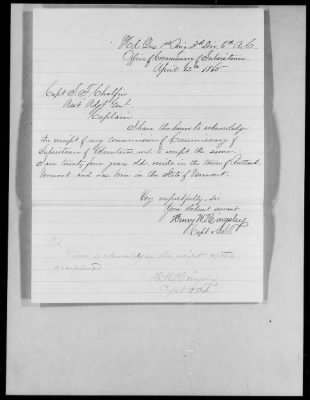 Hd Qrs 1st Brig. 3d Div. 6th A.C.
Office of Commissary of Subsistence
April 22th 1865
Capt S. F. Chalfin
Asst Adjt Genl
Captain
I have the honor to acknowledge
the receipt of my commission of Commissary of
Subsistence of Volunteers and I accept the same.
I am twenty four years old, reside in the town of Rutland
Vermont, and was born in the State of Vermont.
Very respectfully, Sir
Your Obdient servant
Henry W. Kingsley
Capt & C.S.
acknowledge the receipt of the
Kingsley
Capt & C.S.